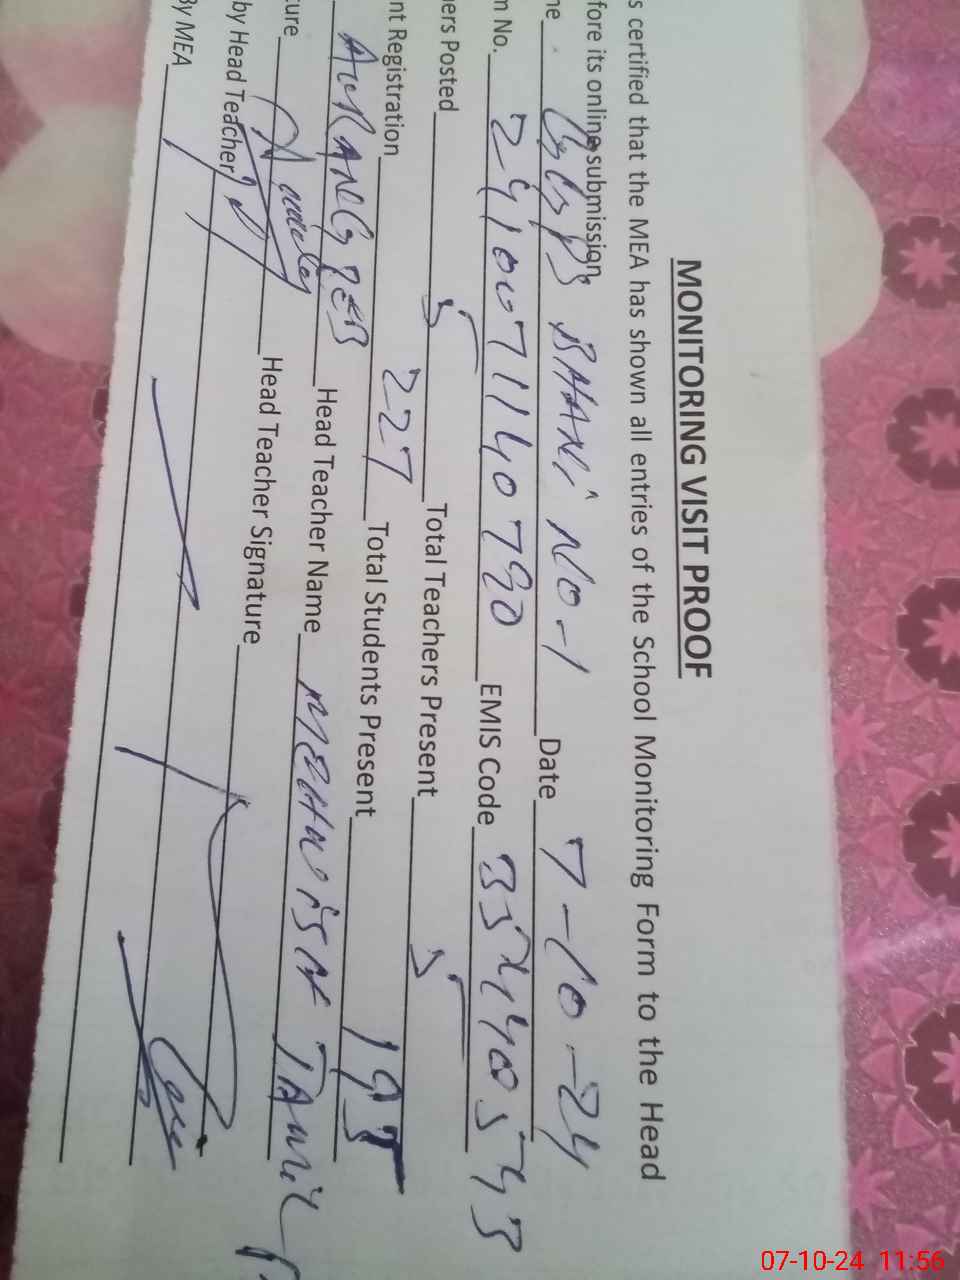 MONITORING VISIT PROOF
s certified that the MEA has shown all entries of the School Monitoring Form to the Head
fore its online submission
ne GGPS BHANI NO-1 Date 7-10-24
n No. 2410071140790 EMIS Code
ners Posted 5 Total Teachers Present 5
nt Registration 227 Total Students Present
AURANGZEB Head Teacher Name MEHWISH
ture Head Teacher Signature
by Head Teacher
By MEA
07-10-24 11:56